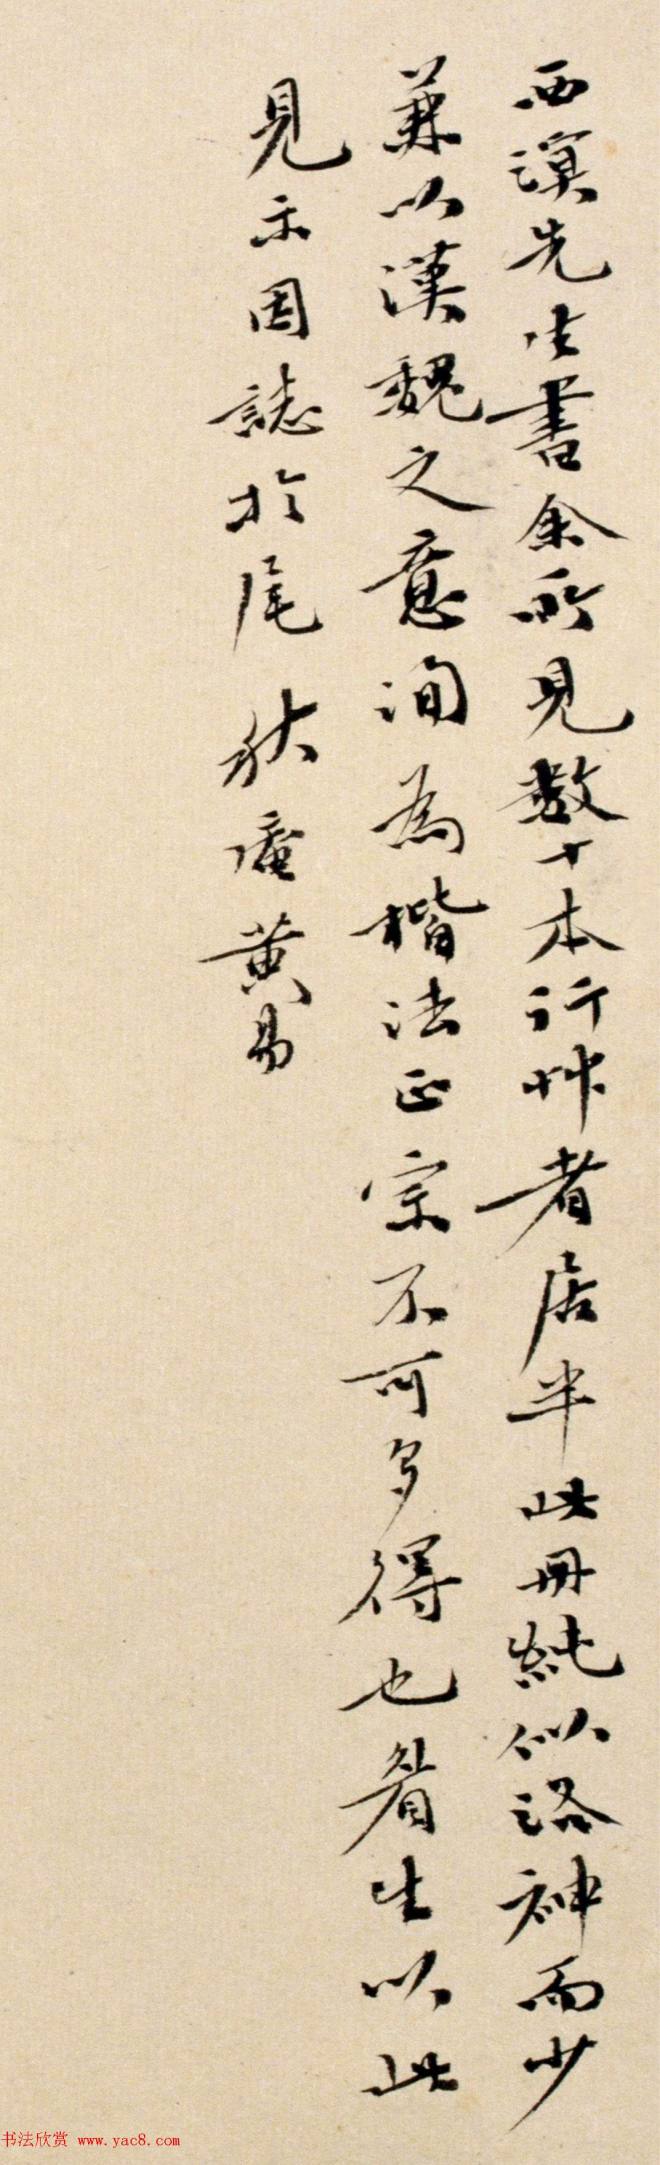 西溟先生書余所見數十本行艸者居半此冊純似洛神而少
兼以漢魏之意洵為楷法正宗不可多得也眉生以此
見示因誌於尾 秋盦黃易
书法欣赏 www.yac8.com